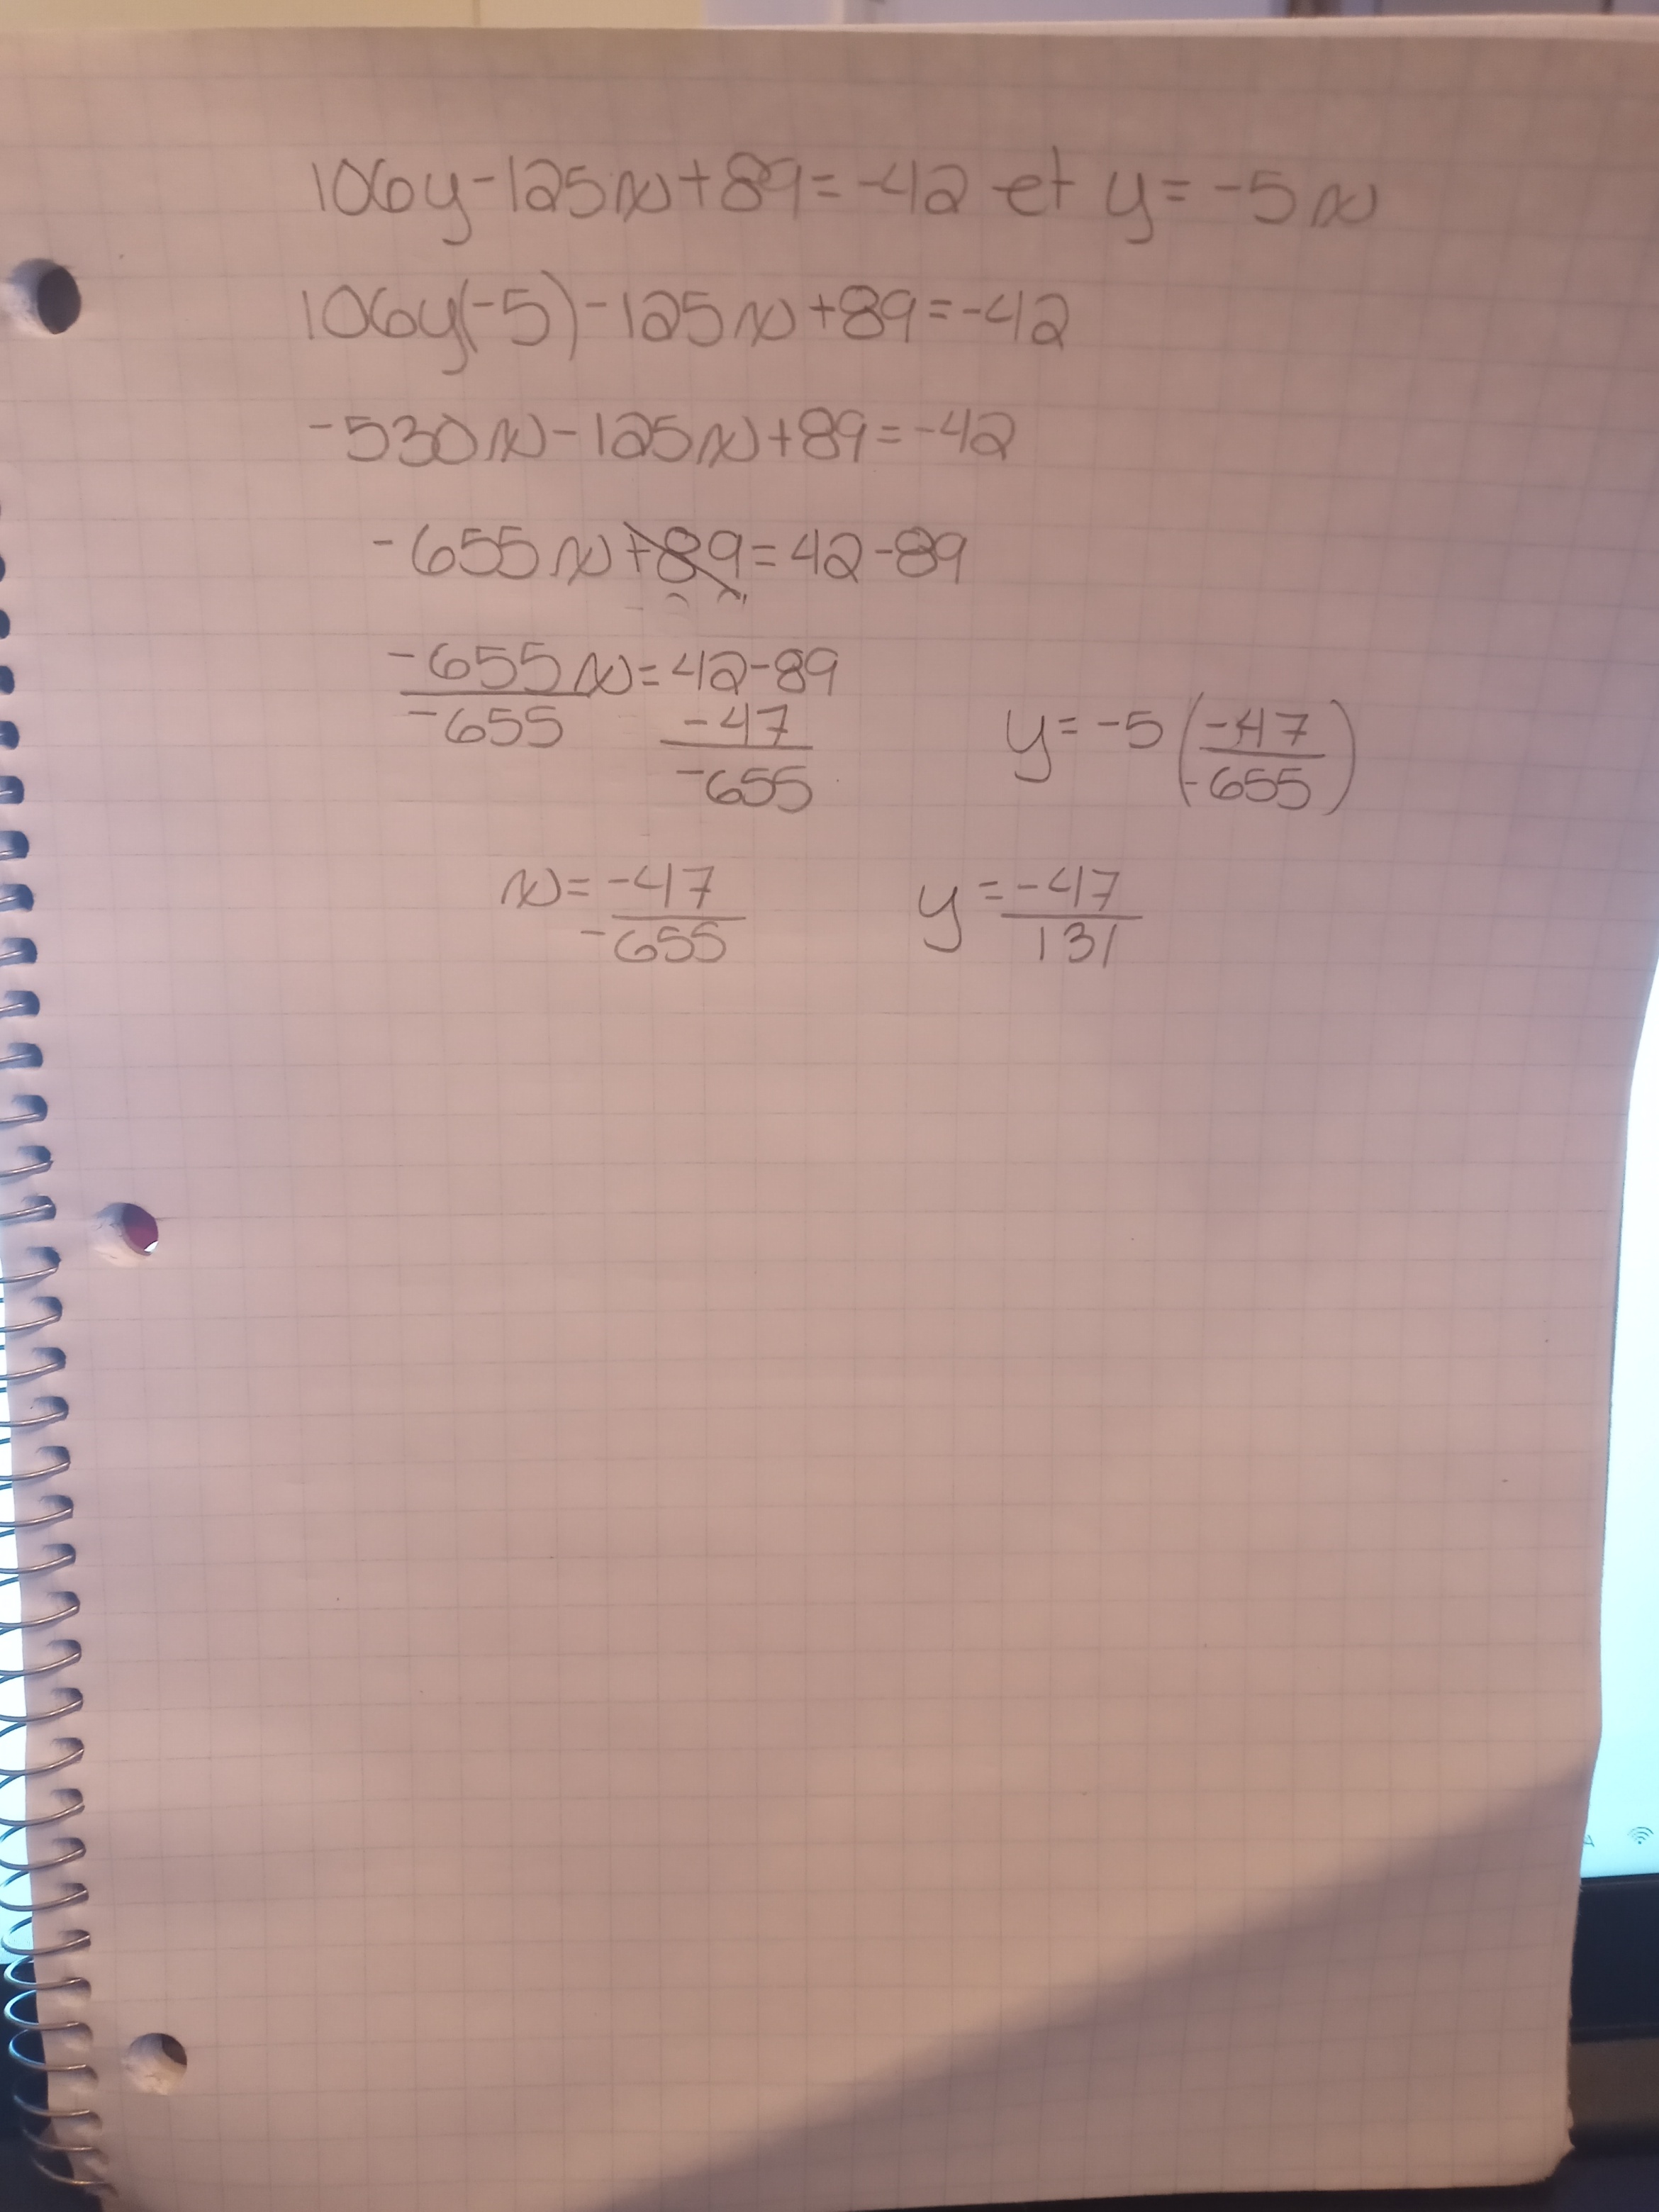 106y-125x+89=-42 et y=-5x
106y(-5)-125x+89=-42
-530x-125x+89=-42
-655x+89=42-89
-655x=42-89
-655
-47
-655
y=-5(-47/-655)
x=-47/-655
y=-47/131